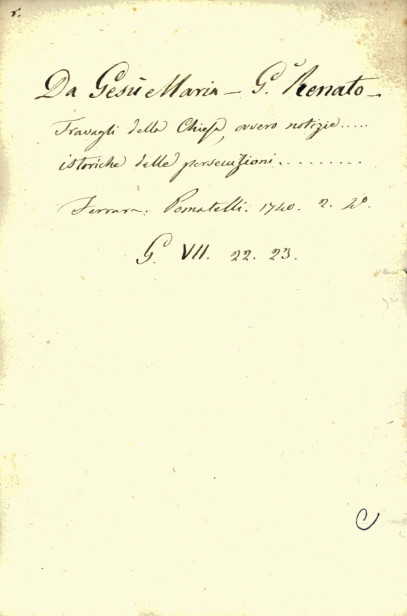 r.
Da Gesù e Maria - G.ⁿ Renato -
Travagli della Chiesa, ovvero notizie.....
istoriche delle persecuzioni.........
Ferrara: Pomatelli. 1740. 2. 4º.
G. VII. 22. 23.
C